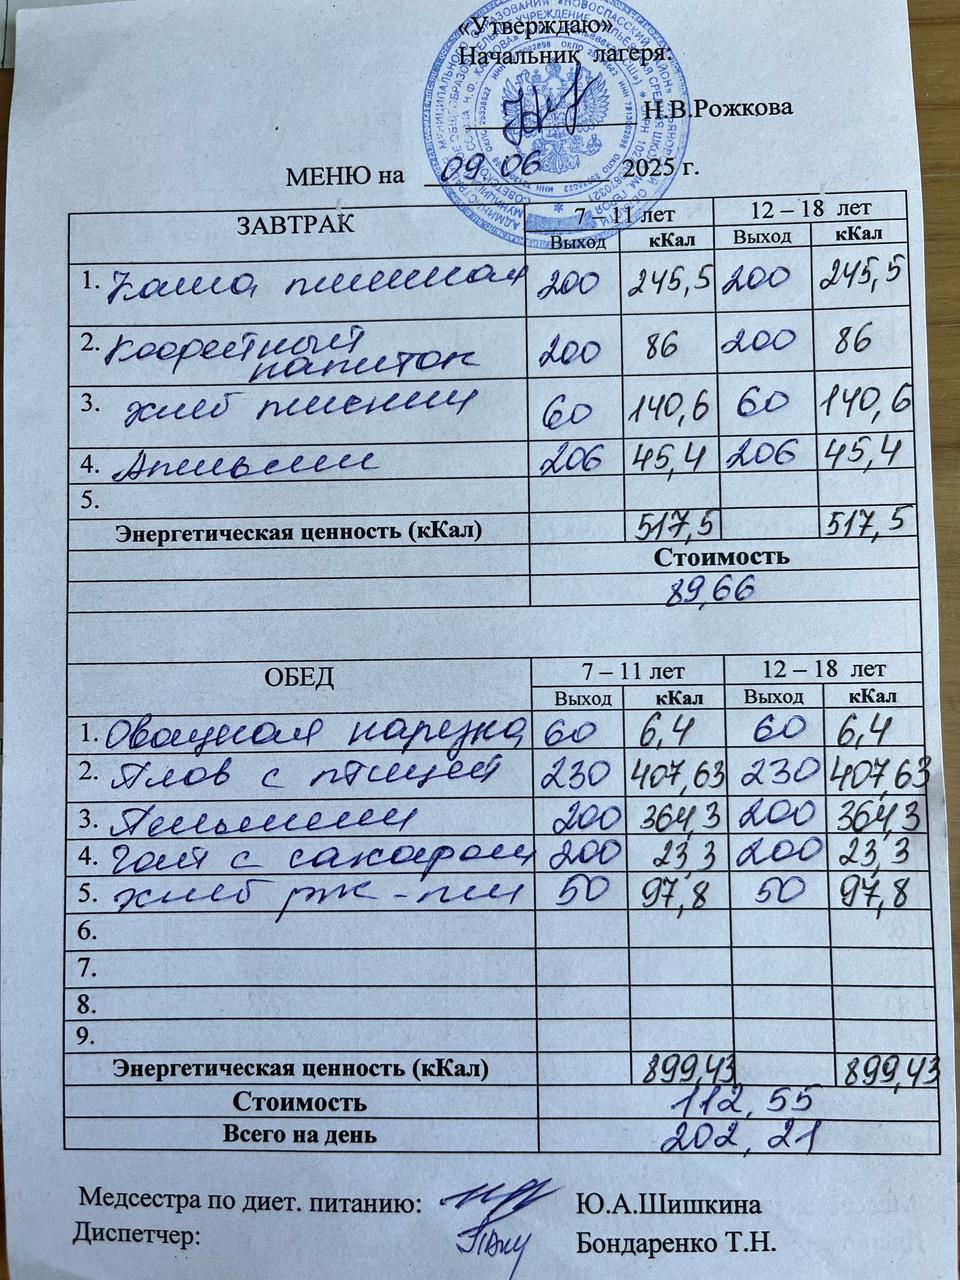 «Утверждаю»
Начальник лагеря:
Н.В.Рожкова
МЕНЮ на 09 06 2025 г.
ЗАВТРАК 7 – 11 лет 12 – 18 лет
Выход кКал Выход кКал
1. Каша пшенная 200 245,5 200 245,5
2. Кофейный напиток 200 86 200 86
3. хлеб пшенич 60 140,6 60 140,6
4. Апельсин 206 45,4 206 45,4
5.
Энергетическая ценность (кКал) 517,5 517,5
Стоимость
89,66
ОБЕД 7 – 11 лет 12 – 18 лет
Выход кКал Выход кКал
1. Овощная нарезка 60 6,4 60 6,4
2. Плов с птицей 230 407,63 230 407,63
3. Пельмени 200 364,3 200 364,3
4. Чай с сахаром 200 23,3 200 23,3
5. хлеб рж - пш 50 97,8 50 97,8
6.
7.
8.
9.
Энергетическая ценность (кКал) 899,43 899,43
Стоимость 112,55
Всего на день 202,21
Медсестра по диет. питанию: Ю.А.Шишкина
Диспетчер: Бондаренко Т.Н.